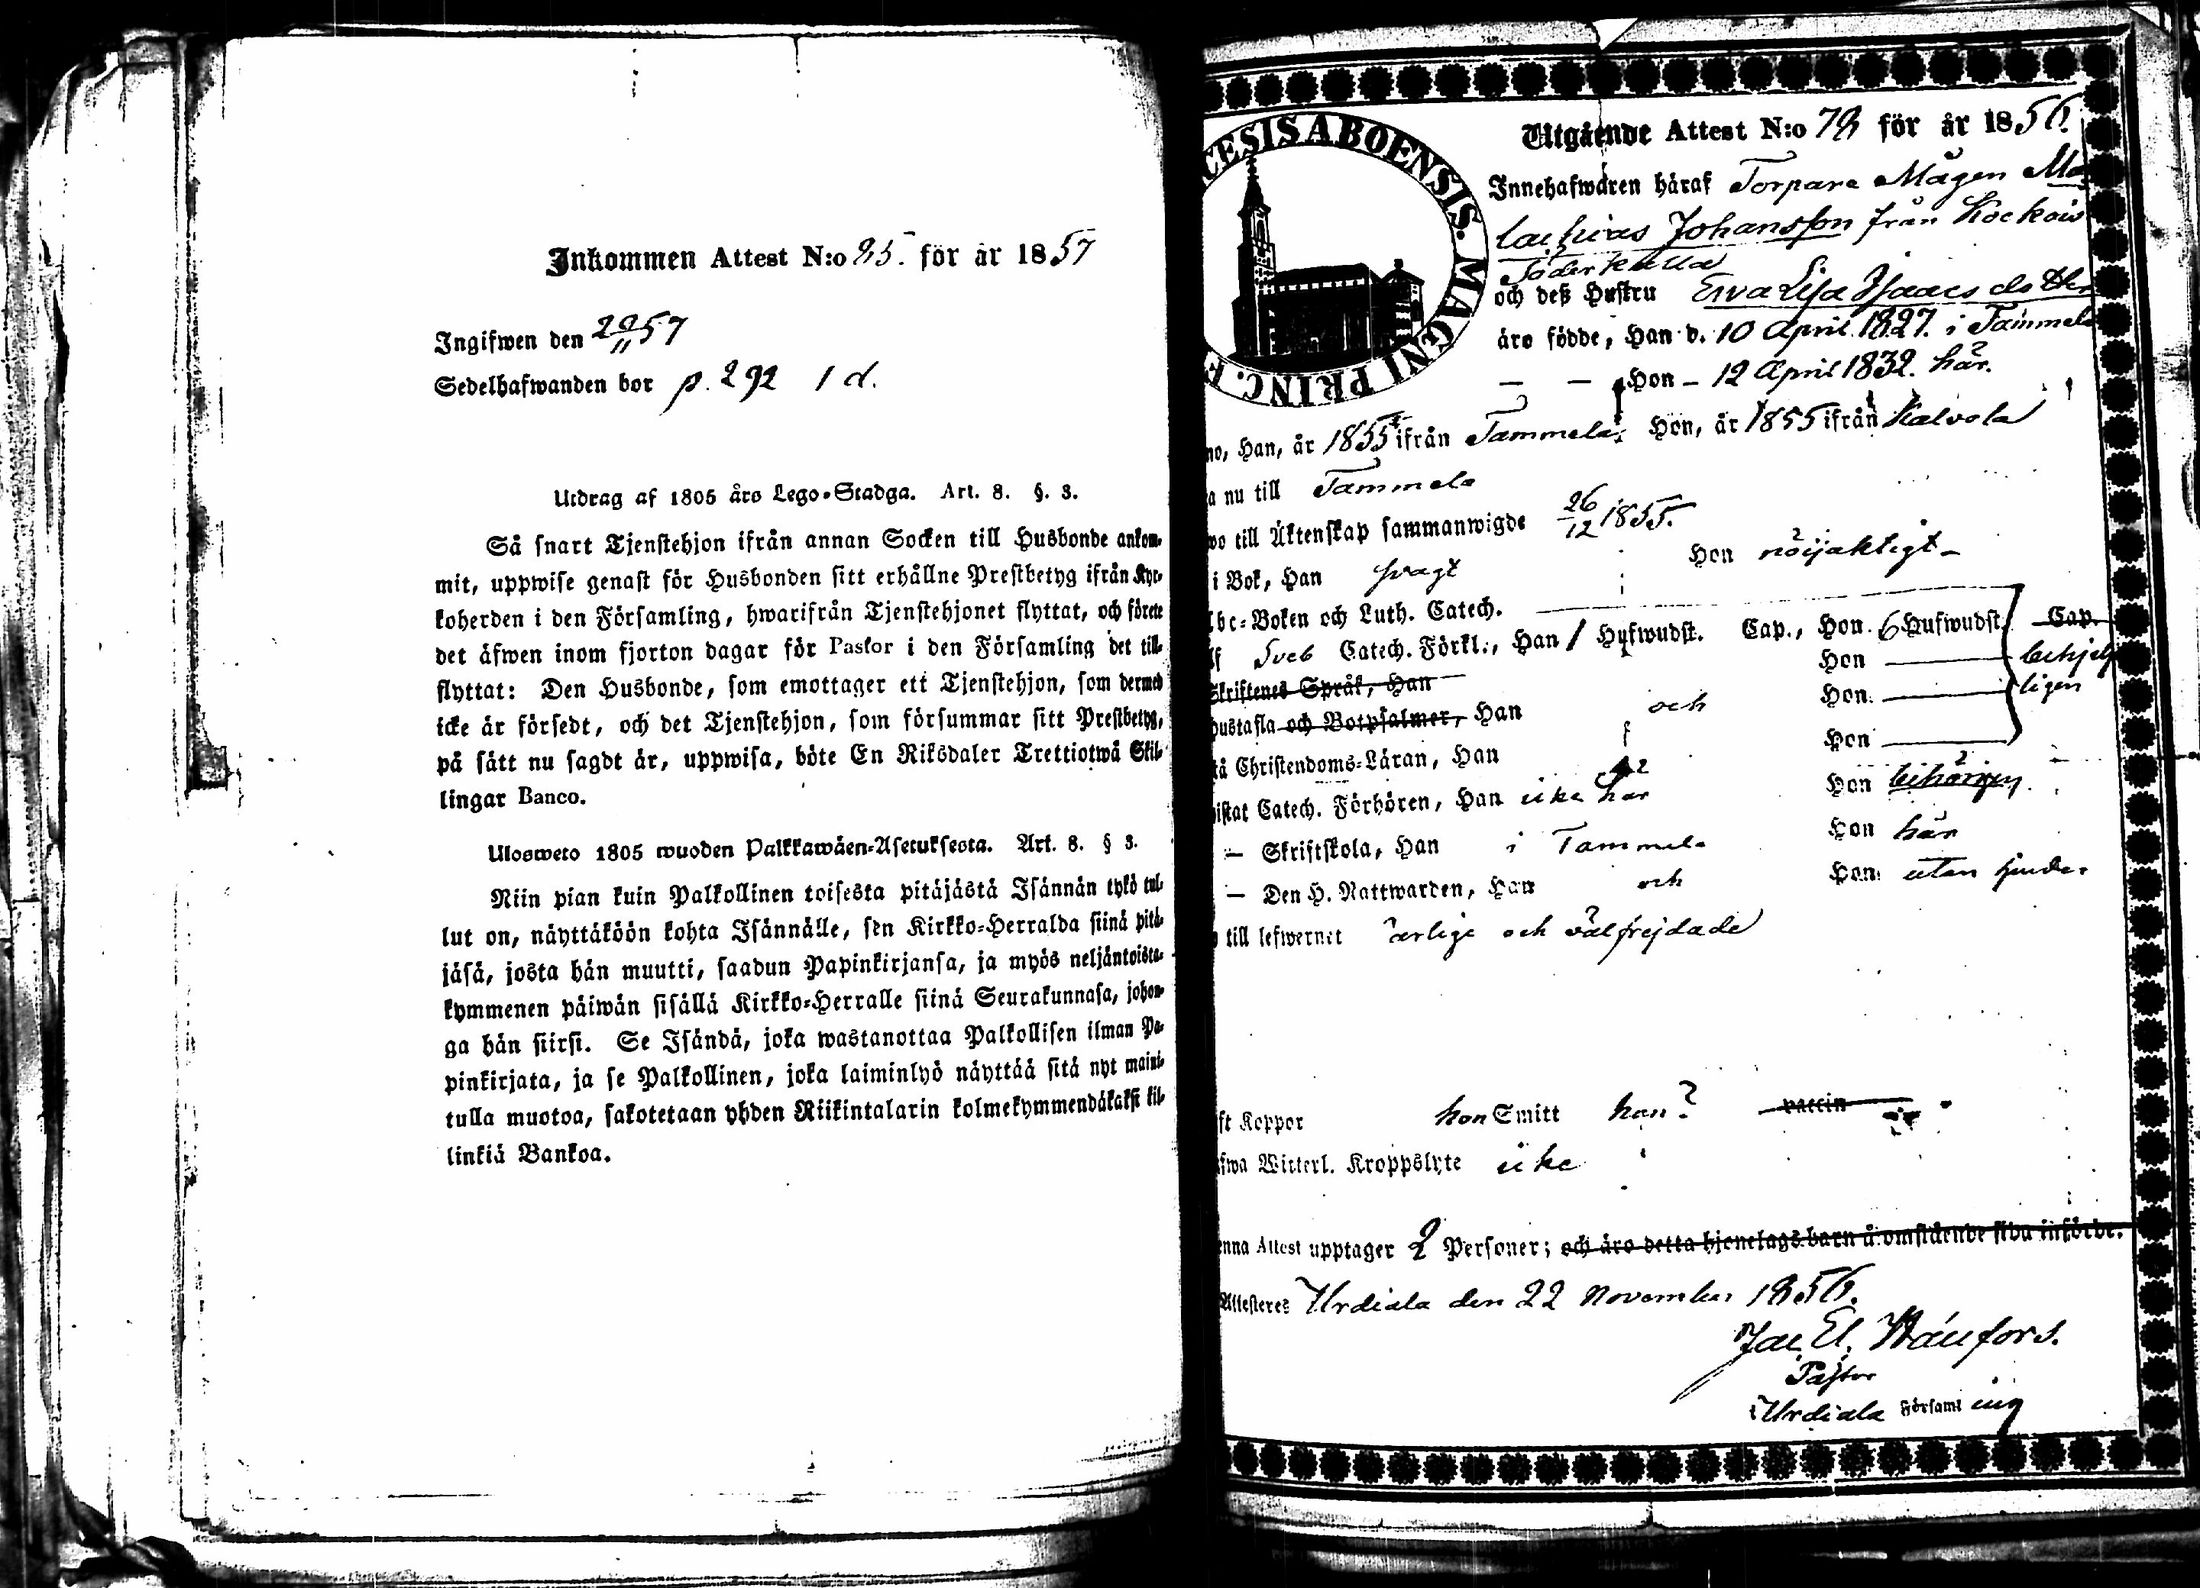 Inkommen Attest N:o 95. för år 1857
Ingifwen den 29/11 57
Sedelhafwanden bor p. 292 1 d.
Utdrag af 1805 års Lego-Stadga. Art. 8. §. 3.
Så snart Tjenstehjon ifrån annan Socken till Husbonde ankom-
mit, uppwise genast för Husbonden sitt erhållne Prestbetyg ifrån Kyr-
koherden i den Församling, hwarifrån Tjenstehjonet flyttat, och förete
det äfwen inom fjorton dagar för Pastor i den Församling det till-
flyttat: Den Husbonde, som emottager ett Tjenstehjon, som dermed
icke är försedt, och det Tjenstehjon, som försummar sitt Prestbetyg,
på sätt nu sagdt är, uppwisa, böte En Riksdaler Trettiotwå Skil-
lingar Banco.
Ulosweto 1805 wuoden Palkkawäen-Asetuksesta. Art. 8. § 3.
Niin pian kuin Palkollinen toisesta pitäjästä Isännän tykö tul-
lut on, näyttäköön kohta Isännälle, sen Kirkko-Herralda siinä pitä-
jäsä, josta hän muutti, saadun Papinkirjansa, ja myös neljäntoista-
kymmenen päiwän sisällä Kirkko-Herralle siinä Seurakunnasa, johon-
ga hän siirsi. Se Isändä, joka wastanottaa Palkollisen ilman Pa-
pinkirjata, ja se Palkollinen, joka laiminlyö näyttää sitä nyt maini-
tulla muotoa, sakotetaan yhden Riikintalarin kolmekymmendäkaksi kil-
linkiä Bankoa.
CESIS ABOENSIS. MAGNI PRINC. F
Utgående Attest N:o 78 för år 1856.
Innehafwaren häraf Torpare Mågen Ma
Johansson från Kockois
Söderkulla
och deß Hustru Ewa Lisa Isaacsdotter
äro födde, Han d. 10 April 1827. i Tammela
— — Hon — 12 April 1832. här.
no, Han, år 1855 ifrån Tammela, Hon, år 1855 ifrån Kalvola
a nu till Tammela
wo till Äktenskap sammanwigde 26/12 1855.
i Bok, Han svagt Hon nöijaktigt
Abc-Boken och Luth. Catech.
lf Sveb Catech. Förkl., Han 1 Hufwudst. Cap., Hon 6 Hufwudst. Cap.
Skriftenes Språk, Han Hon behjelp
hustafla och Botpsalmer, Han och Hon ligen
tå Christendoms-Läran, Han Hon
istat Catech. Förhören, Han icke här Hon behörigen
— Skriftskola, Han i Tammela Hon här
— Den H. Nattwarden, Han och Hon utan hinder
till lefwernet ärlige och välfrejdade
ft Koppor hon Smitt han? vaccin
fwa Witterl. Kroppslyte icke
enna Attest upptager 2 Personer; och äro detta hjonelags barn å omstående sida införde.
Attesteres Urdiala den 22 November 1856.
Pastor
i Urdiala Församling